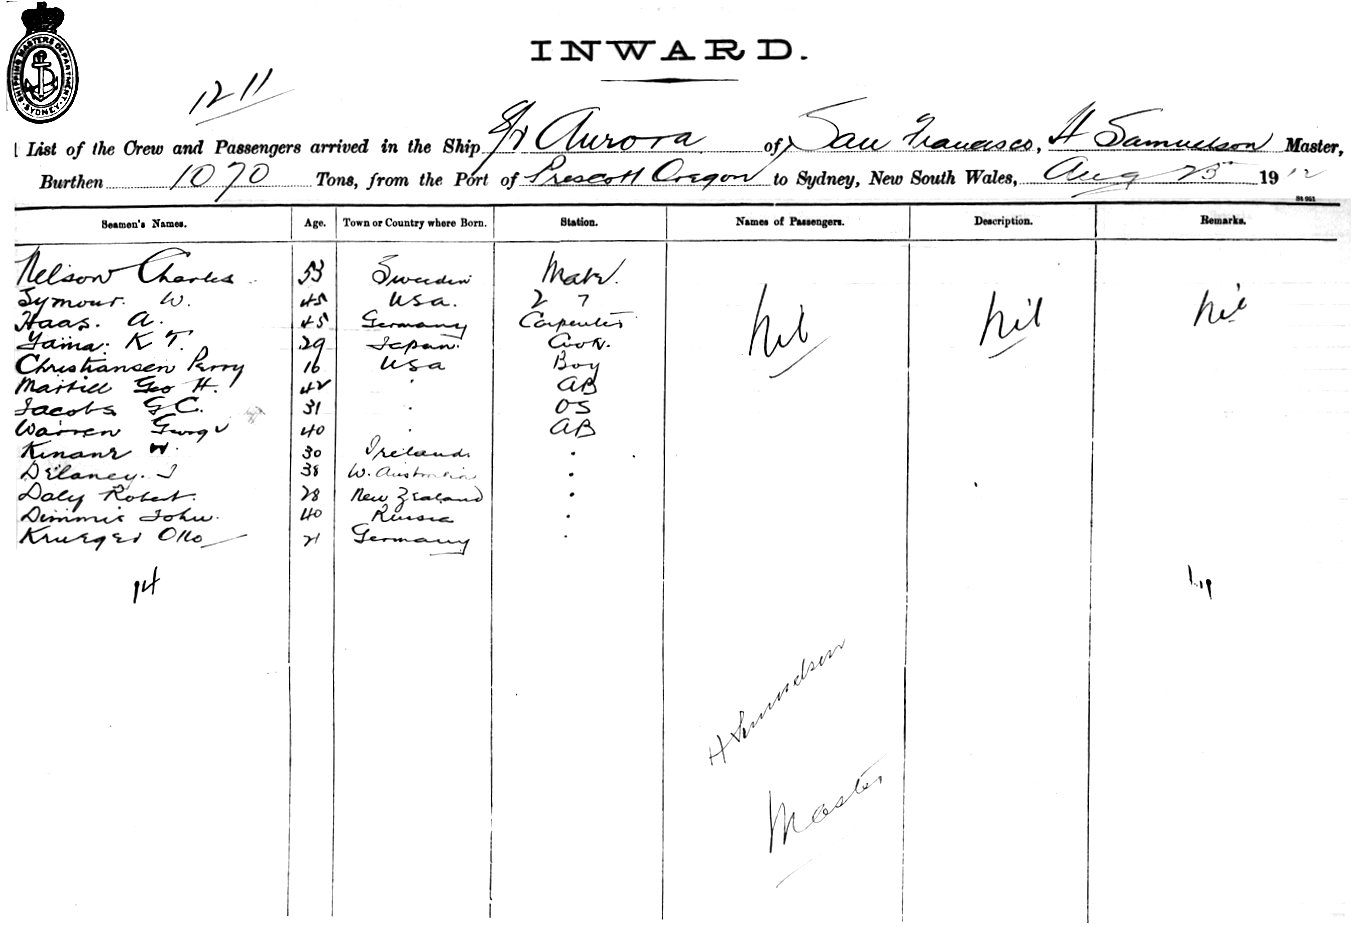 SHIPPING MASTERS DEPARTMENT SYDNEY
INWARD.
1211
List of the Crew and Passengers arrived in the Ship Aurora of San Francisco, H Samuelson Master,
Burthen 1070 Tons, from the Port of Prescott Oregon to Sydney, New South Wales, Aug 25 1912
St 951
Seamen's Names. Age. Town or Country where Born. Station. Names of Passengers. Description. Remarks.
Nelson Charles 53 Sweden Mate. nil nil nil
Symour. W. 45 USA. 2
Haas. A. 45 Germany Carpenter
Yama. K T. 29 Japan. Cook.
Christiansen Perry 16 USA Boy
Martill Geo H. 42 " AB
Jacobs G C. 31 " OS
Warren George 40 " AB
Kinane W. 30 Ireland "
Delaney. J 38 W. Australia "
Daly Robert. 28 New Zealand "
Dimmie John. 40 Russia "
Krueger Otto 21 Germany "
14
H Samuelsen
Master